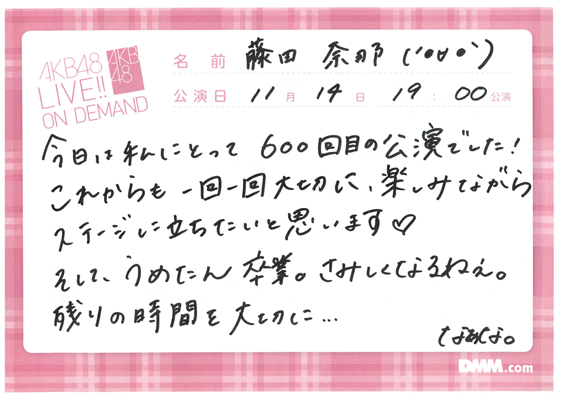 AKB48
LIVE!!
ON DEMAND
AKB
48
名前 藤田 奈那 (´°ω°`)
公演日 11月 14日 19:00公演
今日は私にとって 600回目の公演でした!
これからも 一回一回大切に、楽しみながら
ステージに立ちたいと思います♡
そして、うめたん 卒業。さみしくなるねぇ。
残りの時間を大切に…
なぁな。
DMM.com